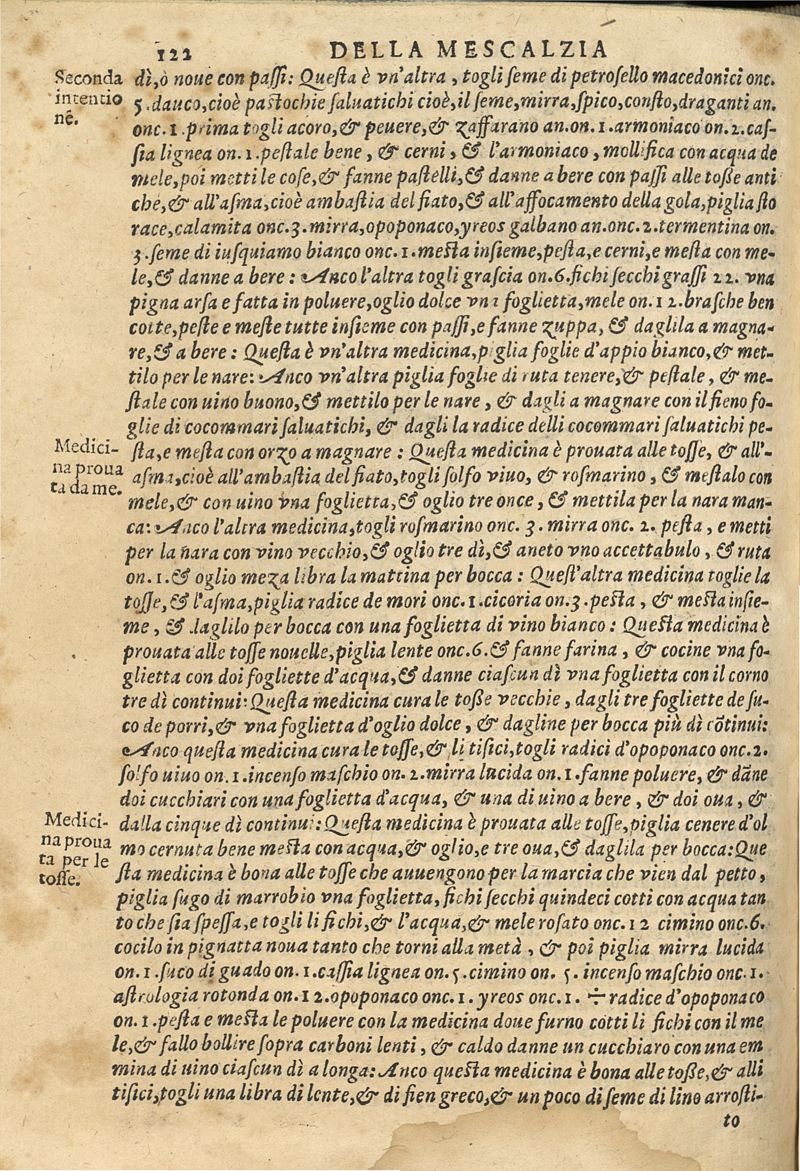 122 DELLA MESCALZIA
Seconda
intentio
nê.
dì, ò noue con passi: Questa è vn'altra, togli seme di petrosello macedonici onc.
5. dauco, cioè pastochie saluatichi cioè, il seme, mirra, spico, consto, draganti an.
onc. 1. prima togli acoro, & peuere, & zaffarano an. on. 1. armoniaco on. 2. cas-
sia lignea on. 1. pestale bene, & cerni, & l'armoniaco, mollifica con acqua de
mele, poi metti le cose, & fanne pastelli, & danne a bere con passi alle tosse anti
che, & all'asma, cioè ambastia del fiato, & all'affocamento della gola, piglia sto
race, calamita onc. 3. mirra, opoponaco, yreos galbano an. onc. 2. termentina on.
3. seme di iusquiamo bianco onc. 1. mesta insieme, pesta, e cerni, e mesta con me-
le, & danne a bere: Anco l'altra togli grascia on. 6. fichi secchi grassi 22. vna
pigna arsa e fatta in poluere, oglio dolce vna foglietta, mele on. 12. brasche ben
cotte, peste e meste tutte insieme con passi, e fanne zuppa, & daglila a magna-
re, & a bere: Questa è vn'altra medicina, piglia foglie d'appio bianco, & met-
tilo per le nare: Anco vn'altra piglia foglie di ruta tenere, & pestale, & me-
stale con uino buono, & mettilo per le nare, & dagli a magnare con il fieno fo-
glie di cocommari saluatichi, & dagli la radice delli cocommari saluatichi pe-
Medici-
na proua
ta da me.
sta, e mesta con orzo a magnare: Questa medicina è prouata alle tosse, & all'-
asma, cioè all'ambastia del fiato, togli solfo viuo, & rosmarino, & mestalo con
mele, & con uino vna foglietta, & oglio tre once, & mettila per la nara man-
ca: Anco l'altra medicina, togli rosmarino onc. 3. mirra onc. 2. pesta, e metti
per la nara con vino vecchio, & oglio tre dì, & aneto vno accettabulo, & ruta
on. 1. & oglio meza libra la mattina per bocca: Quest'altra medicina toglie la
tosse, & l'asma, piglia radice de mori onc. 1. cicoria on. 3. pesta, & mesta insie-
me, & daglilo per bocca con una foglietta di vino bianco: Questa medicina è
prouata alle tosse nouelle, piglia lente onc. 6. & fanne farina, & cocine vna fo-
glietta con doi fogliette d'acqua, & danne ciascun dì vna foglietta con il corno
tre dì continui: Questa medicina cura le tosse vecchie, dagli tre fogliette de su-
co de porri, & vna foglietta d'oglio dolce, & dagline per bocca più dì cõtinui:
Anco questa medicina cura le tosse, & li tisici, togli radici d'opoponaco onc. 2.
solfo uiuo on. 1. incenso maschio on. 2. mirra lucida on. 1. fanne poluere, & dãne
doi cucchiari con una foglietta d'acqua, & una di uino a bere, & doi oua, &
Medici-
na proua
ta per le
tosse.
dalla cinque dì continui: Questa medicina è prouata alle tosse, piglia cenere d'ol
mo cernuta bene mesta con acqua, & oglio, e tre oua, & daglila per bocca: Que
sta medicina è bona alle tosse che auuengono per la marcia che vien dal petto,
piglia sugo di marrobio vna foglietta, fichi secchi quindeci cotti con acqua tan
to che sia spessa, e togli li fichi, & l'acqua, & mele rosato onc. 12 cimino onc. 6.
cocilo in pignatta noua tanto che torni alla metà, & poi piglia mirra lucida
on. 1. suco di guado on. 1. cassia lignea on. 5. cimino on. 5. incenso maschio onc. 1.
astrologia rotonda on. 12. opoponaco onc. 1. yreos onc. 1. ÷ radice d'opoponaco
on. 1. pesta e mesta le poluere con la medicina doue furno cotti li fichi con il me
le, & fallo bollire sopra carboni lenti, & caldo danne un cucchiaro con una em
mina di uino ciascun dì a longa: Anco questa medicina è bona alle tosse, & alli
tisici, togli una libra di lente, & di fien greco, & un poco di seme di lino arrosti-
to